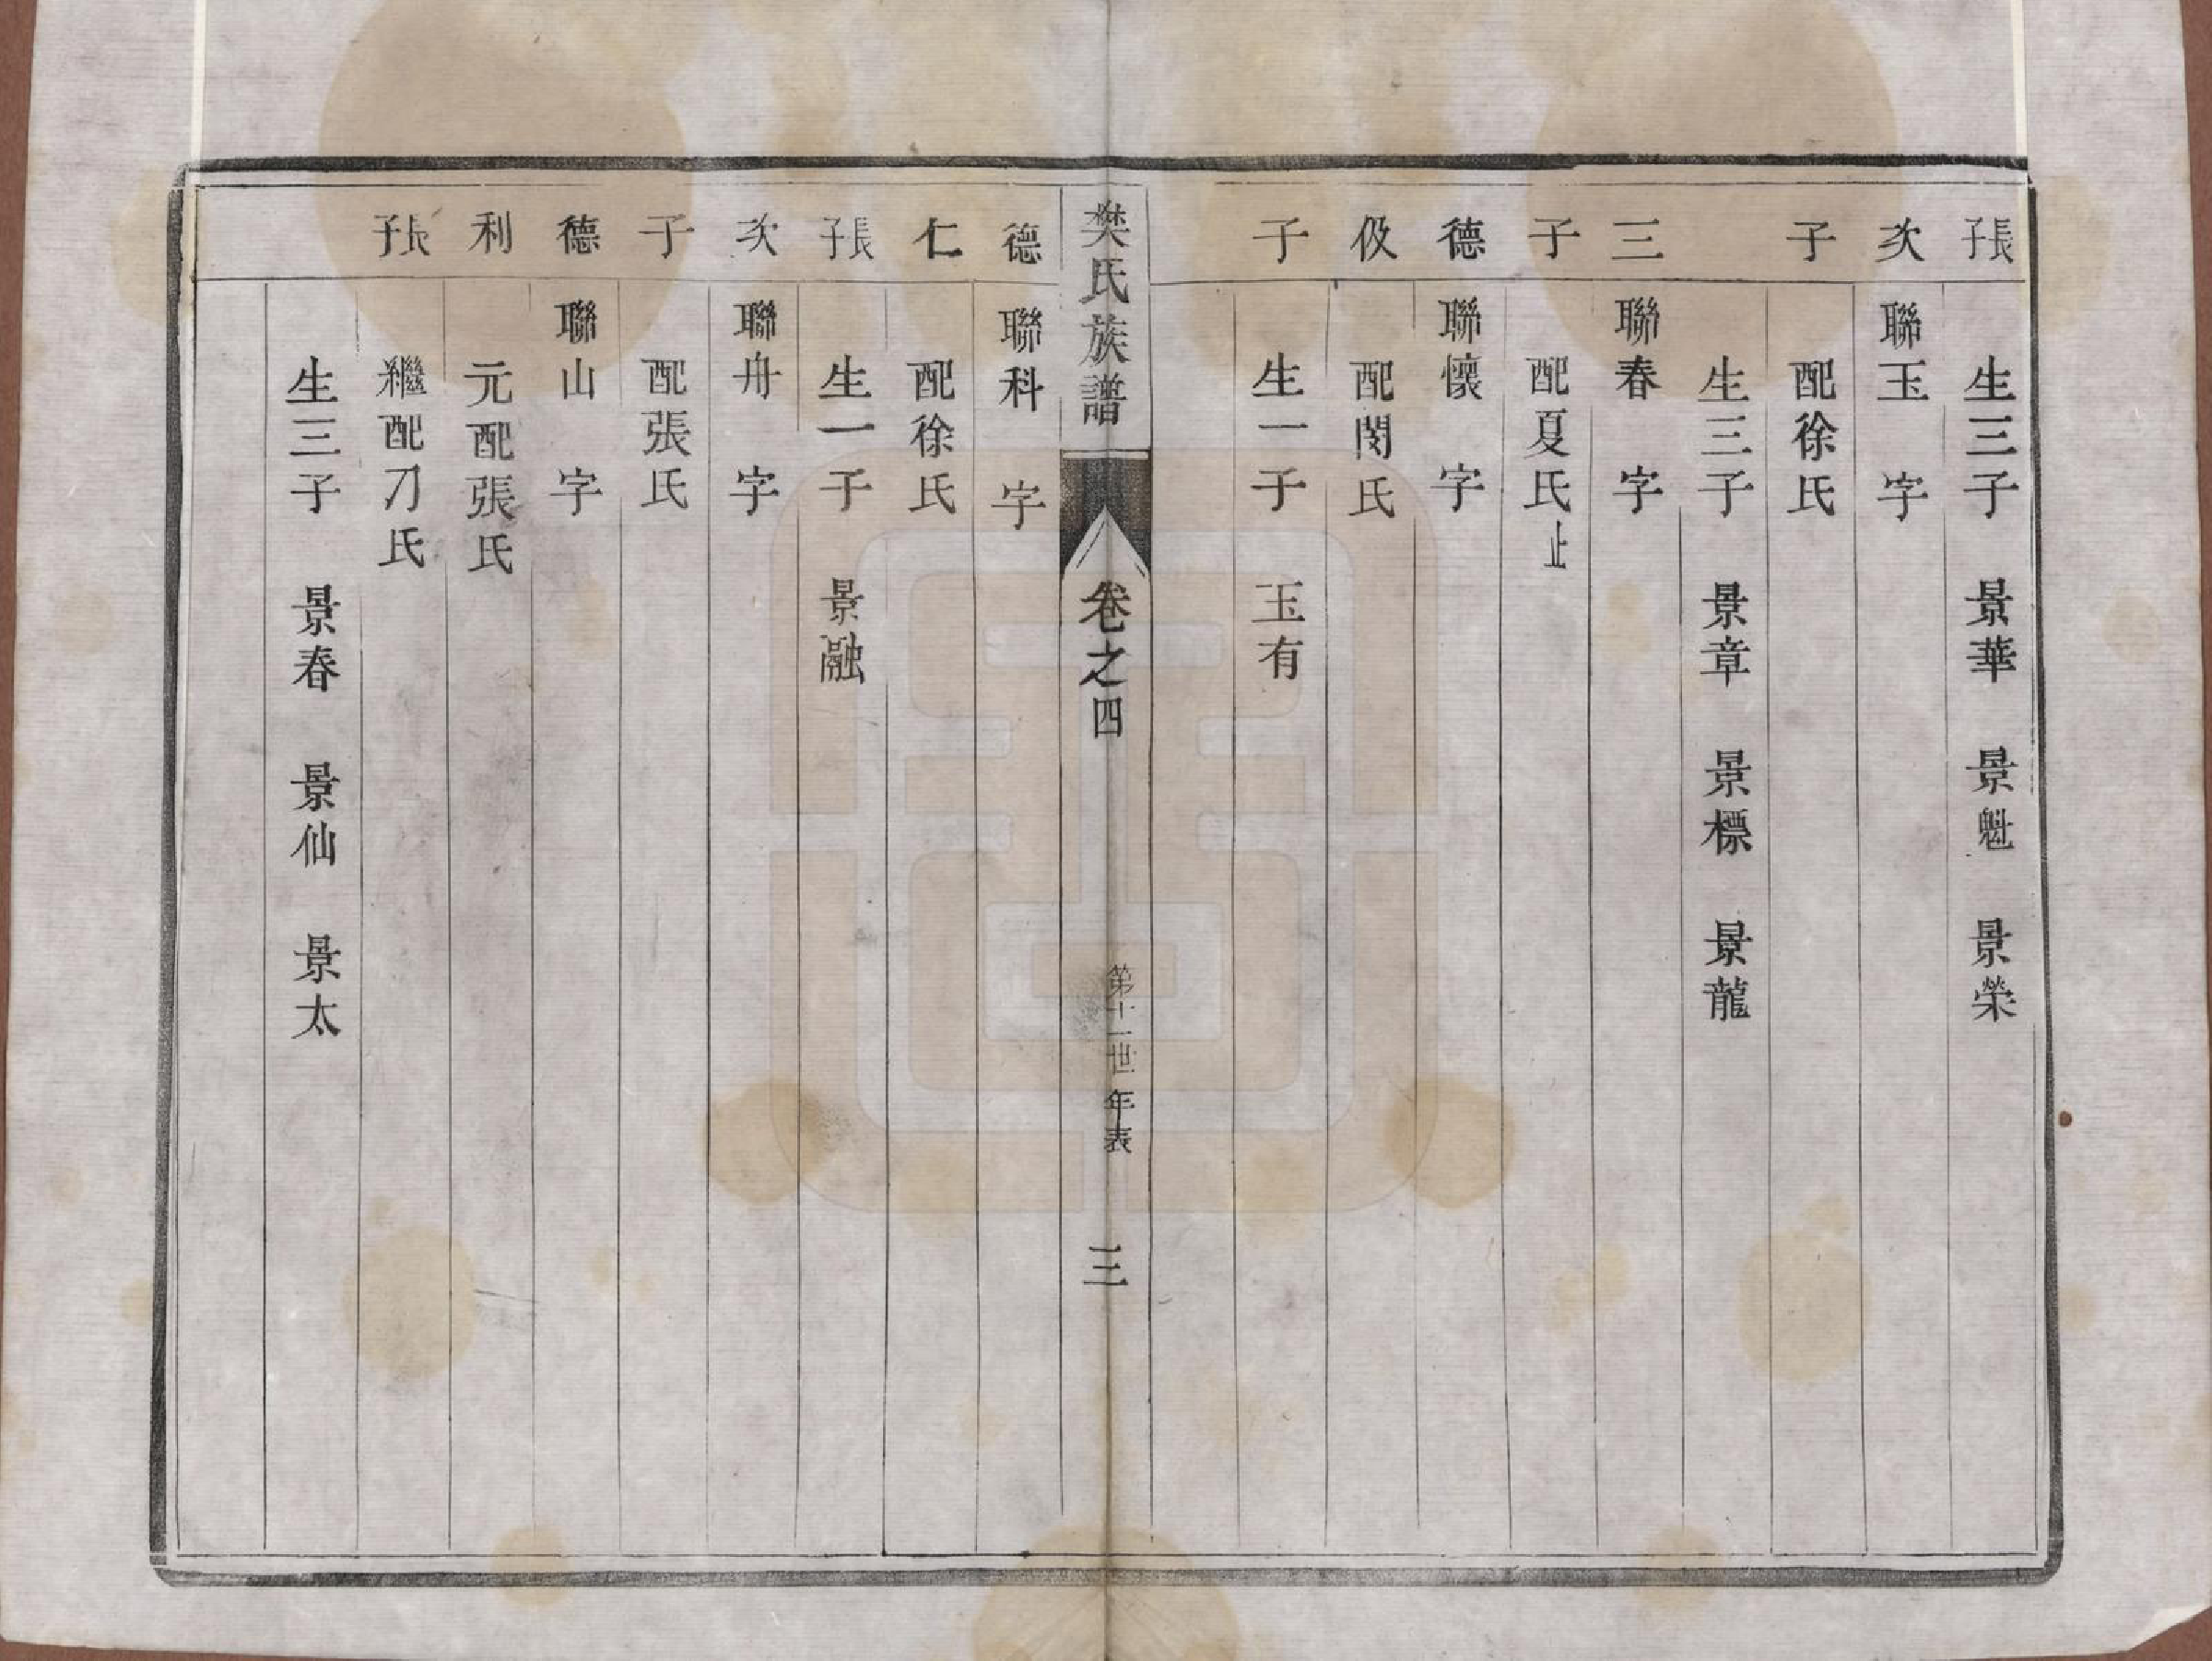 長子
生三子　景華　景魁　景榮
次
聯玉　字
子
配徐氏
生三子　景章　景標　景龍
三
聯春　字
子
配夏氏止
德
聯懷　字
伋
配閔氏
子
生一子　玉有
樊氏族譜　卷之四　第十一世年表　三
德
聯科　字
仁
配徐氏
長子
生一子　景融
次
聯舟　字
子
配張氏
德
聯山　字
利
元配張氏
長子
繼配刀氏
生三子　景春　景仙　景太